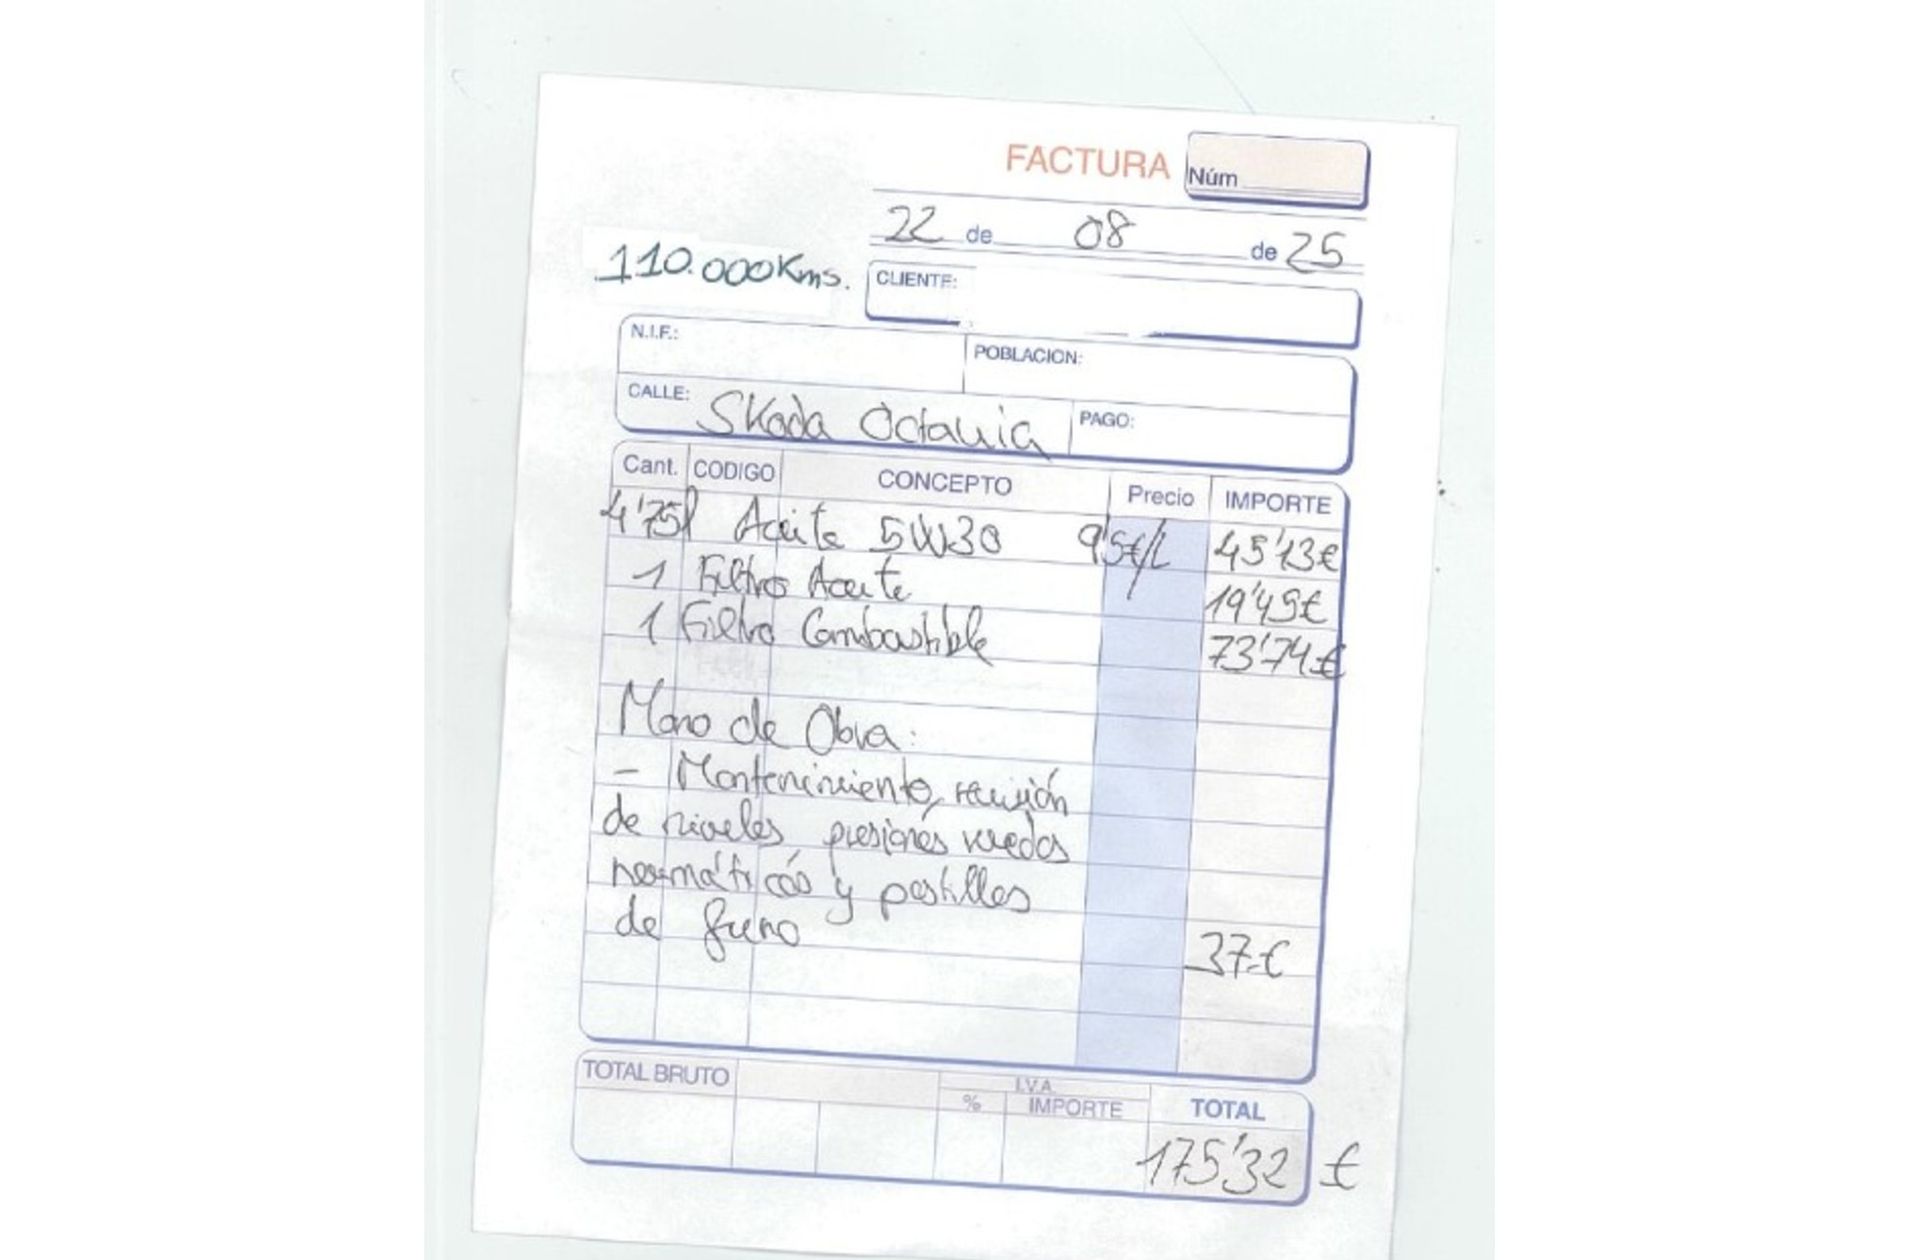 FACTURA Núm
22 de 08 de 25
110.000Kms.
CLIENTE:
N.I.F.: POBLACION:
CALLE: Skoda Octavia PAGO:
Cant. CODIGO CONCEPTO Precio IMPORTE
4'75l Aceite 5W30 9'5€/L 45'13€
1 Filtro Aceite 19'45€
1 Filtro Combustible 73'74€
Mano de Obra:
- Mantenimiento, revisión
de niveles presiones ruedas
neumáticos y pastillas
de freno
37.-€
TOTAL BRUTO I.V.A.
% IMPORTE TOTAL
175'32 €